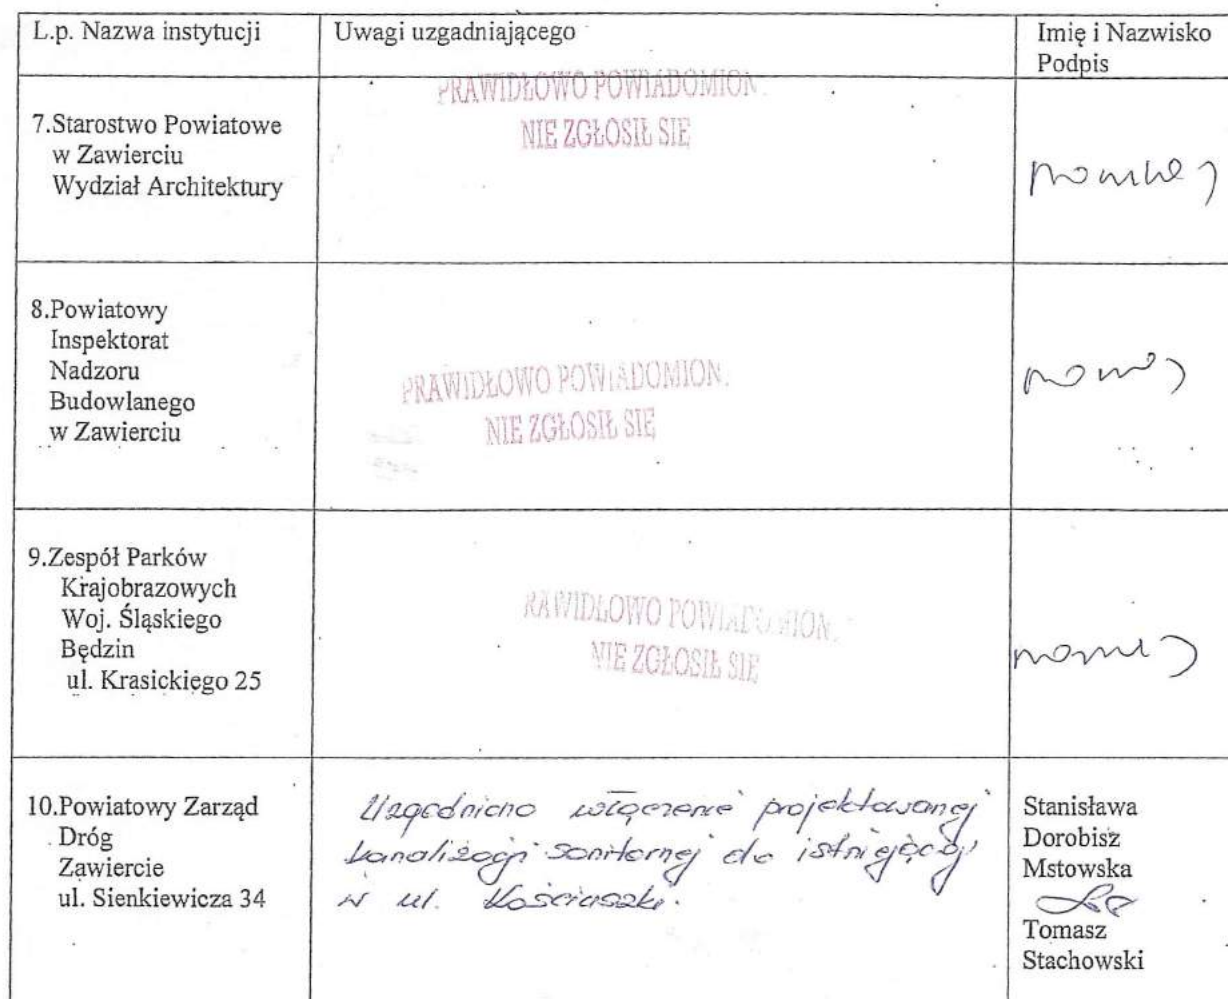 L.p. Nazwa instytucji
Uwagi uzgadniającego
Imię i Nazwisko
Podpis
7.Starostwo Powiatowe
w Zawierciu
Wydział Architektury
PRAWIDŁOWO POWIADOMION.
NIE ZGŁOSIŁ SIĘ
8.Powiatowy
Inspektorat
Nadzoru
Budowlanego
w Zawierciu
PRAWIDŁOWO POWIADOMION.
NIE ZGŁOSIŁ SIĘ
9.Zespół Parków
Krajobrazowych
Woj. Śląskiego
Będzin
ul. Krasickiego 25
RAWIDŁOWO POWIADOMION.
NIE ZGŁOSIŁ SIĘ
10.Powiatowy Zarząd
Dróg
Zawiercie
ul. Sienkiewicza 34
Uzgodniono włączenie projektowanej
kanalizacji sanitarnej do istniejącej
w ul. Kościuszki.
Stanisława
Dorobisz
Mstowska
Tomasz
Stachowski